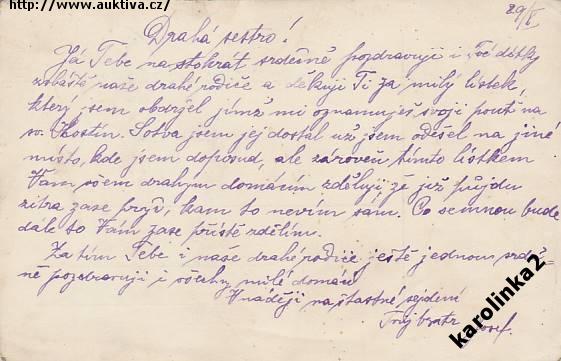 http://www.auktiva.cz/
29/V
Drahá sestro!
Já Tebe na stokrát srdečně pozdravuji i Tvé dítky
zvláště naše drahé rodiče a děkuji Ti za milý lístek,
který jsem obdržel jímž mi oznamuješ svoji pouť na
sv. Hostín. Sotva jsem jej dostal už jsem odešel na jiné
místo, kde jsem doposud, ale zároveň tímto lístkem
Vám všem drahým domácím zděluji, že již půjdu
zitra zase pryč, kam to nevím sám. Co semnou bude
dále to Vám zase příště zdělím.
Za tím Tebe i naše drahé rodiče ještě jednou srdeč-
ně pozdravuji i všechny milé domácí
V naději na štastné sejdení
Tvůj bratr Josef.
karolinka2